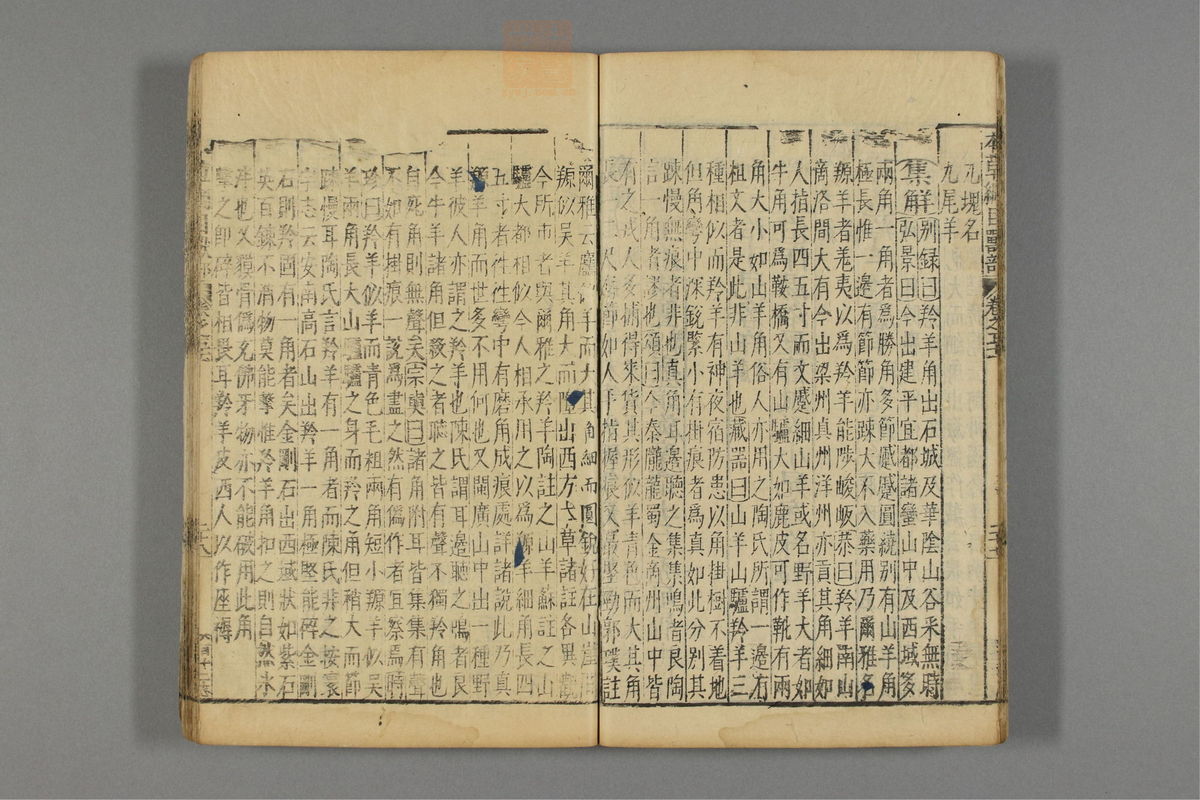 本草綱目獸部 卷之五十一
九塊名
九尾羊
集解別録曰羚羊角出石城及華陰山谷采無時
弘景曰今出建平宜都諸蠻山中及西域多
兩角一角者爲勝角多節蹙蹙圓繞別有山羊角
極長惟一邊有節節亦疎大不入藥用乃爾雅名
羱羊者羗夷以爲羚羊能陟峻岅恭曰羚羊南山
商洛間大有今出梁州真州洋州亦貢其角細如
人指長四五寸而文蹙細山羊或名野羊大者如
牛角可爲鞍橋又有山驢大如鹿皮可作靴有兩
角大小如山羊角俗人亦用之陶氏所謂一邊有
祖文者是此非山羊也藏器曰山羊山驢羚羊三
種相似而羚羊有神夜宿防患以角掛樹不着地
但角彎中深銳緊小有掛痕者爲真如此分別其
踈慢無痕者非也真角耳邊聽之集集鳴者良陶
言一角者謬也頌曰今秦隴龍蜀金商州山中皆
有之戎人多捕得來貨其形似羊青色而大其角
長一二尺有節如人手指握痕又最堅勁郭璞註
爾雅云麢似羊而大其角細而圓銳好在山崖間
羱似吳羊其角大而墮出西方本草諸註各異觀
今所市者與爾雅之羚羊陶註之山羊蘇註之山
驢大都相似今人相承用之以爲羚羊細角長四
五寸者往往彎中有磨角成痕處詳諸說此乃真
羚羊角而世多不用何也又閩廣山中出一種野
羊彼人亦謂之羚羊也陳氏謂耳邊聽之鳴者良
今牛羊諸角但殺之者聽之皆有聲不獨羚角也
自死角則無聲矣宗奭曰諸角附耳皆集集有聲
不如有掛痕一說爲盡之然有僞作者宜察焉時
珍曰羚羊似羊而青色毛粗兩角短小羱羊似吳
羊兩角長大山驢驢之身而羚之角但稍大而節
踈慢耳陶氏言羚羊有一角者而陳氏非之按寰
宇志云安南高石山出羚羊一角極堅能碎金剛
石則羚固有一角者矣金剛石出西域狀如紫石
英百鍊不消物莫能擊惟羚羊角扣之則自然冰
泮也又貘骨僞充佛牙物亦不能破用此角
擊之即碎皆相畏耳羚羊皮西人以作座褥